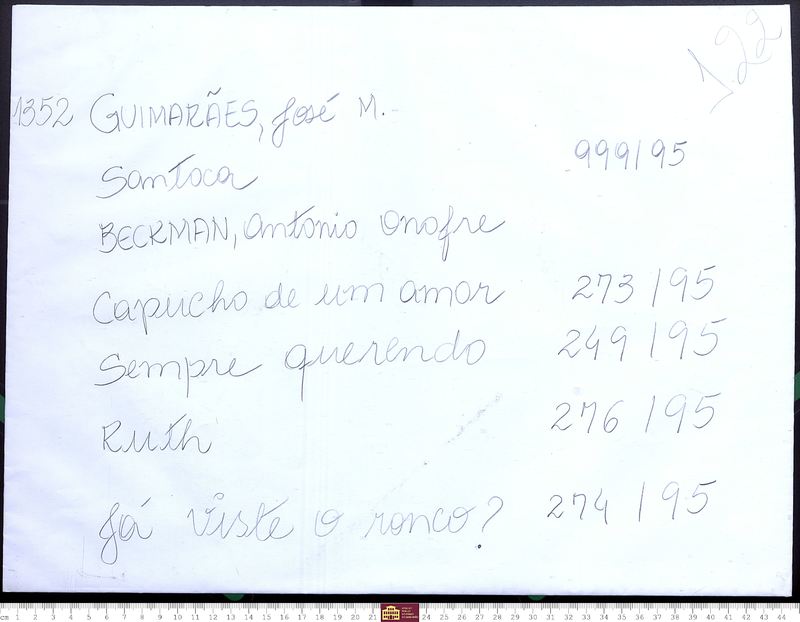 122
1352 GUIMARÃES, José M.
999/95
Santoca
BECKMAN, Antonio Onofre
Capucho de um amor 273/95
Sempre querendo 249/95
Ruth 276/95
Já viste o ronco? 274/95
cm 1 2 3 4 5 6 7 8 9 10 11 12 13 14 15 16 17 18 19 20 21 24 25 26 27 28 29 30 31 32 33 34 35 36 37 38 39 40 41 42 43 44